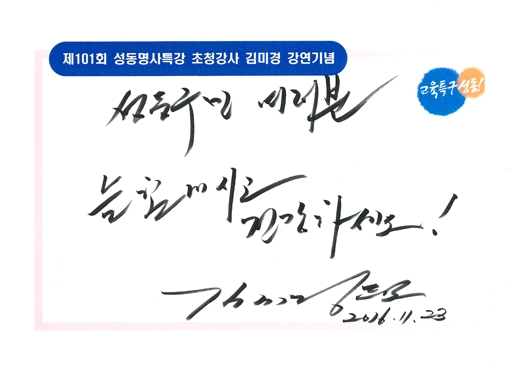 제101회 성동명사특강 초청강사 김미경 강연기념
교육특구 성동!
성동구민 여러분
늘 힘내시고
건강하세요!
김미경드림
2016.11.23